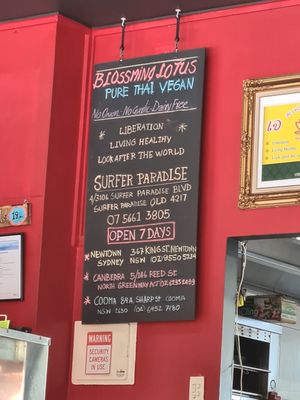 BLOSSMING LOTUS
PURE THAI VEGAN
No Onion - No Garlic - Dairy Free
LIBERATION
LIVING HEALTHY
LOOK AFTER THE WORLD
SURFER PARADISE
4/3106 SURFER PARADISE BLVD
SURFER PARADISE QLD 4217
07 5661 3805
OPEN 7 DAYS
NEWTOWN 367 KING ST, NEWTOWN
SYDNEY NSW 02 9550
CANBERRA REED ST
NORTH GREENWAY ACT
COOMA SHARP ST COOMA
NSW 2630 (02) 6452 7180
WARNING
SECURITY
CAMERAS
IN USE